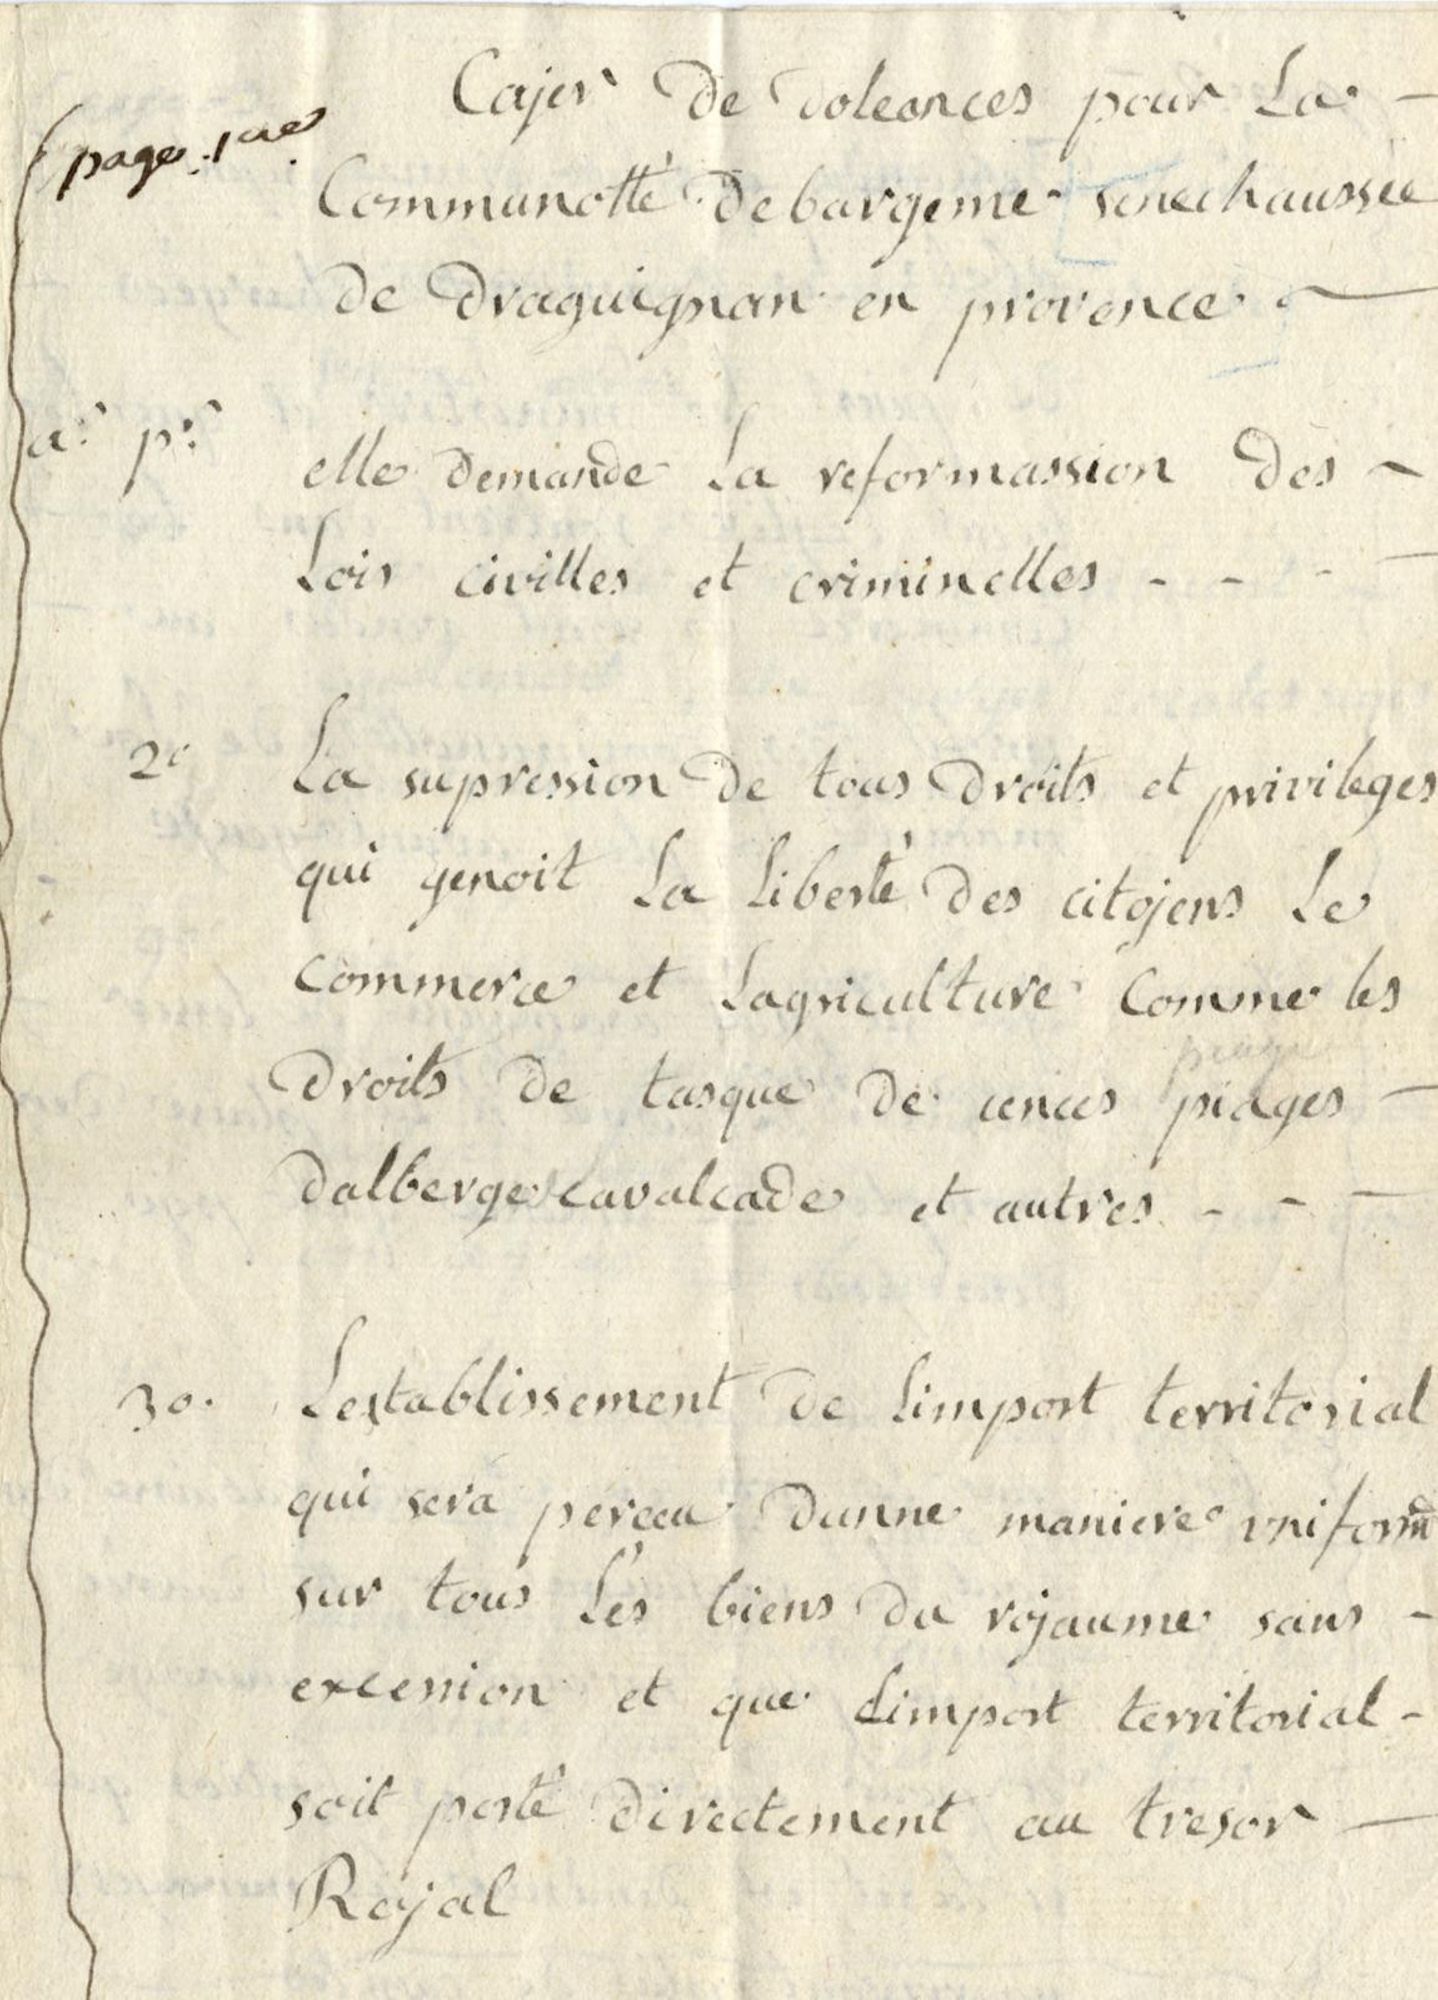 page 1ere
Cajer de doleances pour La
Communotté de bargeme senechaussée
de draguignan en provence
ar. pr. elle demande La reformassion des
Lois civilles et criminelles - - - -
2e La supression de tous droits et privileges
qui genoit La Liberté des citojens Le
commerce et Lagriculture Comme les
droits de tasque de cences piages
dalberge cavalcade et autres - - -
3o. Lestablissement de Limport territorial
qui sera perceu dunne maniere uniforme
sur tous Les biens du rojaume sans -
excession et que Limport territorial -
soit porté directement au tresor
Rojal